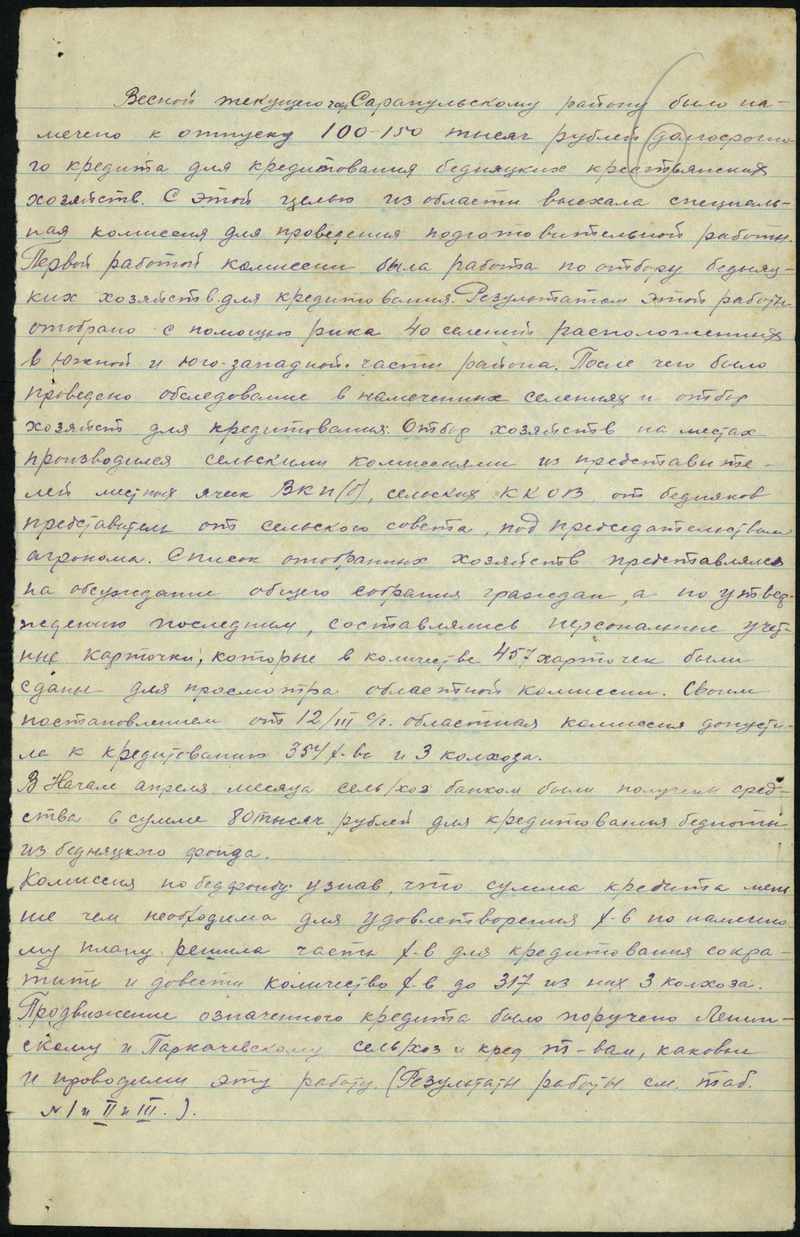 Весной текущего года Сарапульскому району было на-
мечено к отпуску 100-150 тысяч рублей долгосрочно-
го кредита для кредитования бедняцких крестьянских
хозяйств. С этой целью из области выехала специаль-
ная комиссия для проведения подготовительной работы.
Первой работой комиссии была работа по отбору бедняц-
ких хозяйств для кредитования. Результатом этой работы
отобрано с помощью рика 40 селений расположенных
в южной и юго-западной части района. После чего было
проведено обследование в намеченных селениях и отбор
хозяйств для кредитования. Отбор хозяйств на местах
производился сельскими комиссиями из представите-
лей местных ячеек ВКП(б), сельских ККОВ, от бедняков
представитель от сельского совета, под председательством
агронома. Список отобранных хозяйств представлялся
на обсуждение общего собрания граждан, а по утвер-
ждению последним, составлялись персональные учет-
ные карточки, которые в количестве 457 карточек были
сданы для просмотра областной комиссии. Своим
постановлением от 12/III с/г. областная комиссия допусти-
ла к кредитованию 354 х-ва и 3 колхоза.
В Начале апреля месяца сель/хоз банком были получены сред-
ства в сумме 80 тысяч рублей для кредитования бедноты
из бедняцкого фонда.
Комиссия по бедфонду узнав, что сумма кредита мень
ше чем необходима для удовлетворения х-в по намеченно
му плану решила часть х-в для кредитования сокра-
тить и довести количество х-в до 317 из них 3 колхоза.
Продвижение означенного кредита было поручено Ленин-
скому и Паркачевскому сель/хоз и кред т-вам, каковые
и проводили эту работу. (Результаты работы см. таб.
№ I и II и III.).